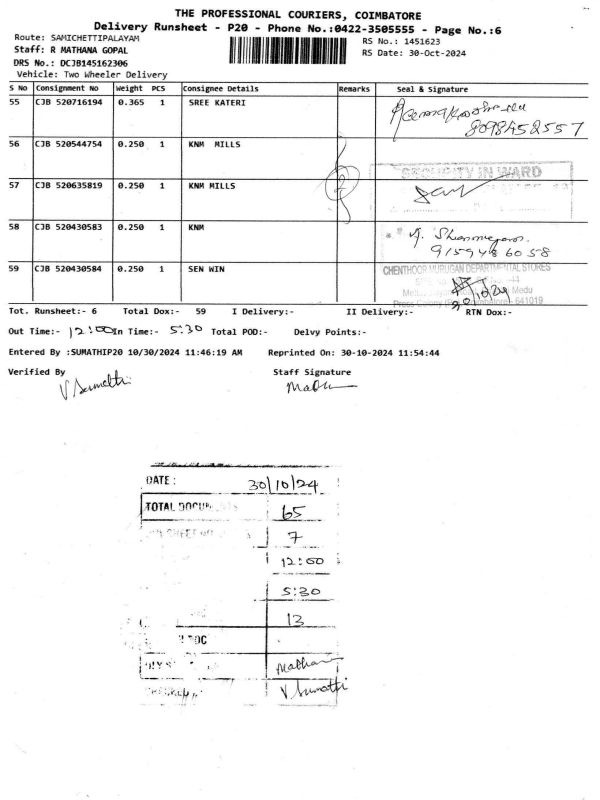 THE PROFESSIONAL COURIERS, COIMBATORE
Delivery Runsheet - P20 - Phone No.:0422-3505555 - Page No.:6
Route: SAMICHETTIPALAYAM
RS No.: 1451623
Staff: R MATHANA GOPAL
RS Date: 30-Oct-2024
DRS No.: DCJB145162306
Vehicle: Two Wheeler Delivery
S No Consignment No Weight PCS Consignee Details Remarks Seal & Signature
55 CJB 520716194 0.365 1 SREE KATERI
8098452557
56 CJB 520544754 0.250 1 KNM MILLS
SECURITY IN WARD
57 CJB 520635819 0.250 1 KNM MILLS
58 CJB 520430583 0.250 1 KNM
9159486058
59 CJB 520430584 0.250 1 SEN WIN
CHENTHOOR MURUGAN DEPARTMENTAL STORES
641019
Tot. Runsheet:- 6 Total Dox:- 59 I Delivery:- II Delivery:- RTN Dox:-
Out Time:- 12:00 In Time:- 5:30 Total POD:- Delvy Points:-
Entered By :SUMATHIP20 10/30/2024 11:46:19 AM Reprinted On: 30-10-2024 11:54:44
Verified By Staff Signature
V Sumathi
DATE : 30/10/24
TOTAL DOCUMENTS 65
7
12:00
5:30
13
DOC
Mathan
V Sumathi